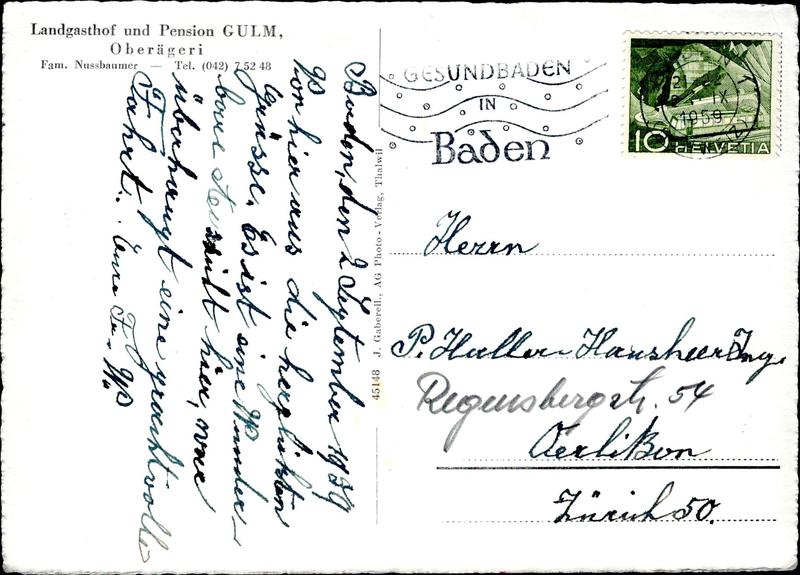 Landgasthof und Pension GULM,
Oberägeri
Fam. Nussbaumer — Tel. (042) 7 52 48
GESUNDBADEN
IN
Baden
1959
10 HELVETIA
45148 J. Gaberell., AG Photo-Verlag, Thalwil
Baden, den 2 September 1959
Von hier aus die herzlichsten
Grüsse. Es ist eine Wunder-
bare hier, war
überhaupt eine prachtvolle
Fahrt.
Herrn
P. Haller-Hausheer Ing.
Regensbergstr. 54
Oerlikon
Zürich 50.